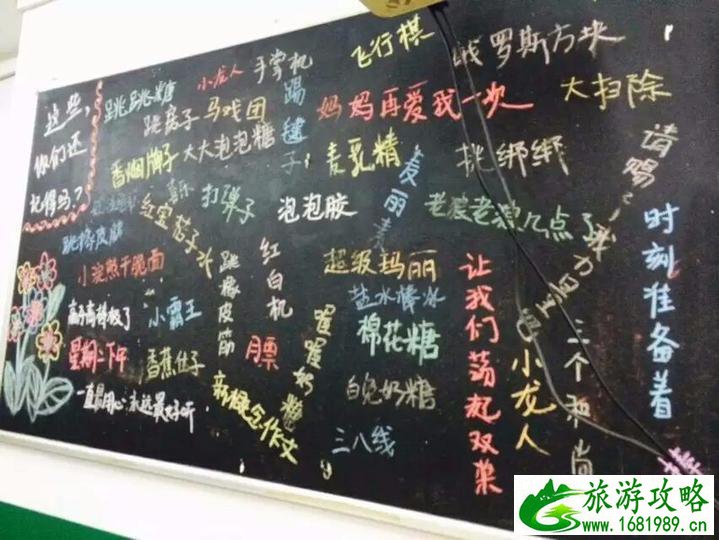 这些,
你们还
记得吗?
跳跳糖
小龙人
手掌机
飞行棋
俄罗斯方块
跳房子
马戏团
踢毽子
妈妈再爱我一次
大扫除
香烟牌子
大大泡泡糖
麦乳精
麦丽素
挑绑绑
请赐予我力量吧
时刻准备着
喜乐
打弹子
泡泡胶
老狼老狼几点了
红宝
跳橡皮筋
小浣熊干脆面
跳橡皮筋
红白机
超级玛丽
盐水棒冰
让我们荡起双桨
三个和尚
小霸王
喔喔奶糖
棉花糖
小龙人
星期二下午
香蕉
月票
白兔奶糖
新概念作文
三八线
旅游攻略
www.1681989.cn